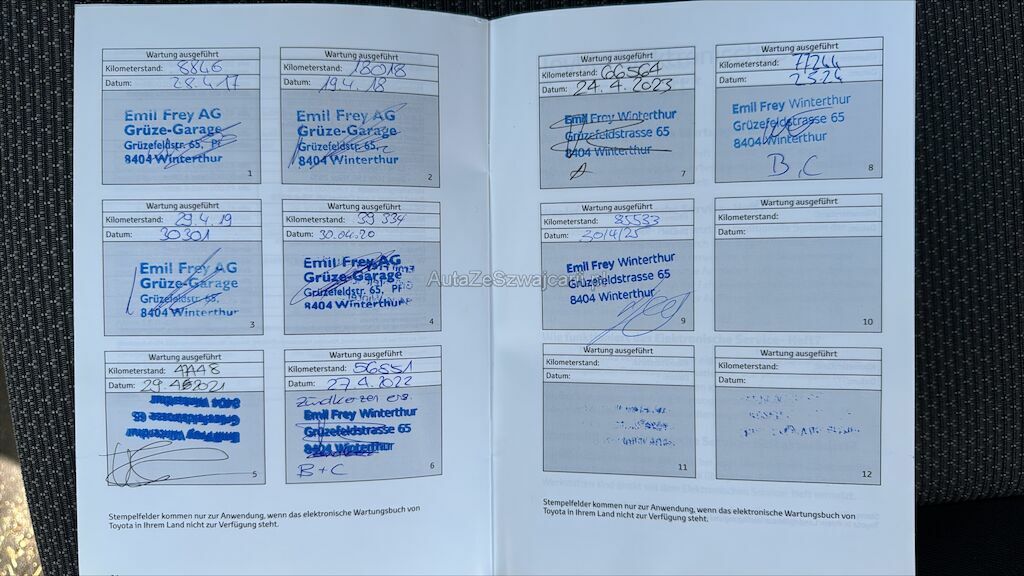 Wartung ausgeführt
Kilometerstand: 8846
Datum: 28.4.17
Emil Frey AG
Grüze-Garage
Grüzefeldstr. 65, Pf
8404 Winterthur
1
Wartung ausgeführt
Kilometerstand: 18018
Datum: 19.4.18
Emil Frey AG
Grüze-Garage
Grüzefeldstr. 65,
8404 Winterthur
2
Wartung ausgeführt
Kilometerstand: 29.4.19
Datum: 30301
Emil Frey AG
Grüze-Garage
Grüzefeldstr. 65,
8404 Winterthur
3
Wartung ausgeführt
Kilometerstand: 39 334
Datum: 30.04.20
Emil Frey AG
Grüze-Garage
Grüzefeldstr. 65,
8404 Winterthur
4
Wartung ausgeführt
Kilometerstand:
Datum: 29.4.2021
8404 Winterthur
Grüzefeldstrasse 65
Emil Frey Winterthur
5
Wartung ausgeführt
Kilometerstand: 56551
Datum: 27.4.2022
Zündkerzen ers.
Emil Frey Winterthur
Grüzefeldstrasse 65
8404 Winterthur
B + C
6
Stempelfelder kommen nur zur Anwendung, wenn das elektronische Wartungsbuch von
Toyota in Ihrem Land nicht zur Verfügung steht.
Wartung ausgeführt
Kilometerstand: 66564
Datum: 24.4.2023
Emil Frey Winterthur
Grüzefeldstrasse 65
8404 Winterthur
A
7
Wartung ausgeführt
Kilometerstand: 77244
Datum: 2.5.24
Emil Frey Winterthur
Grüzefeldstrasse 65
8404 Winterthur
B, C
8
Wartung ausgeführt
Kilometerstand: 85533
Datum: 30/4/25
Emil Frey Winterthur
Grüzefeldstrasse 65
8404 Winterthur
9
Wartung ausgeführt
Kilometerstand:
Datum:
10
Wartung ausgeführt
Kilometerstand:
Datum:
11
Wartung ausgeführt
Kilometerstand:
Datum:
12
Stempelfelder kommen nur zur Anwendung, wenn das elektronische Wartungsbuch von
Toyota in Ihrem Land nicht zur Verfügung steht.